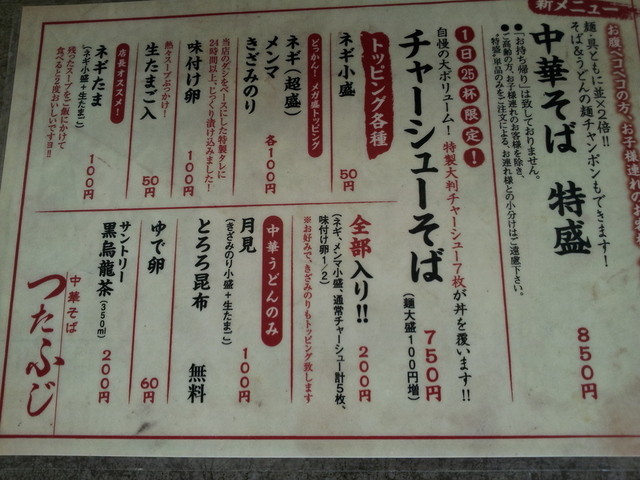 新メニュー
お腹ペコペコの方、お子様連れの
麺・具ともに並×2倍!!
そば&うどんの麺チャンポンもできます!
中華そば 特盛
850円
●「お持ち帰り」は致しておりません。
●ご高齢の方、お子様連れのお客様を除き、
「特盛」単品のみをご注文による、お連れ様との小分けはご遠慮下さい。
1日25杯限定!
自慢の大ボリューム!特製大判チャーシュー7枚が丼を覆います!!
チャーシューそば
(麺大盛100円増)
750円
トッピング各種
ネギ小盛
50円
どっかーん!メガ盛トッピング
ネギ(超盛)
メンマ
きざみのり
各100円
当店のダシをベースにした特製タレに
24時間以上、じっくり漬け込みました!
味付け卵
100円
熱々スープぶっかけ!
生たまご入
50円
店長オススメ!
ネギたま
(ネギ小盛+生たまご)
100円
残ったスープをご飯にかけて
食べると2度おいしいです!!
全部入り!!
200円
(ネギ、メンマ小盛、通常チャーシュー計5枚、
味付け卵1/2)
※お好みで、きざみのりもトッピング致します
中華うどんのみ
月見
(きざみのり小盛+生たまご)
100円
とろろ昆布
無料
ゆで卵
60円
サントリー
黒烏龍茶(350ml)
200円
中華そば
つたふじ